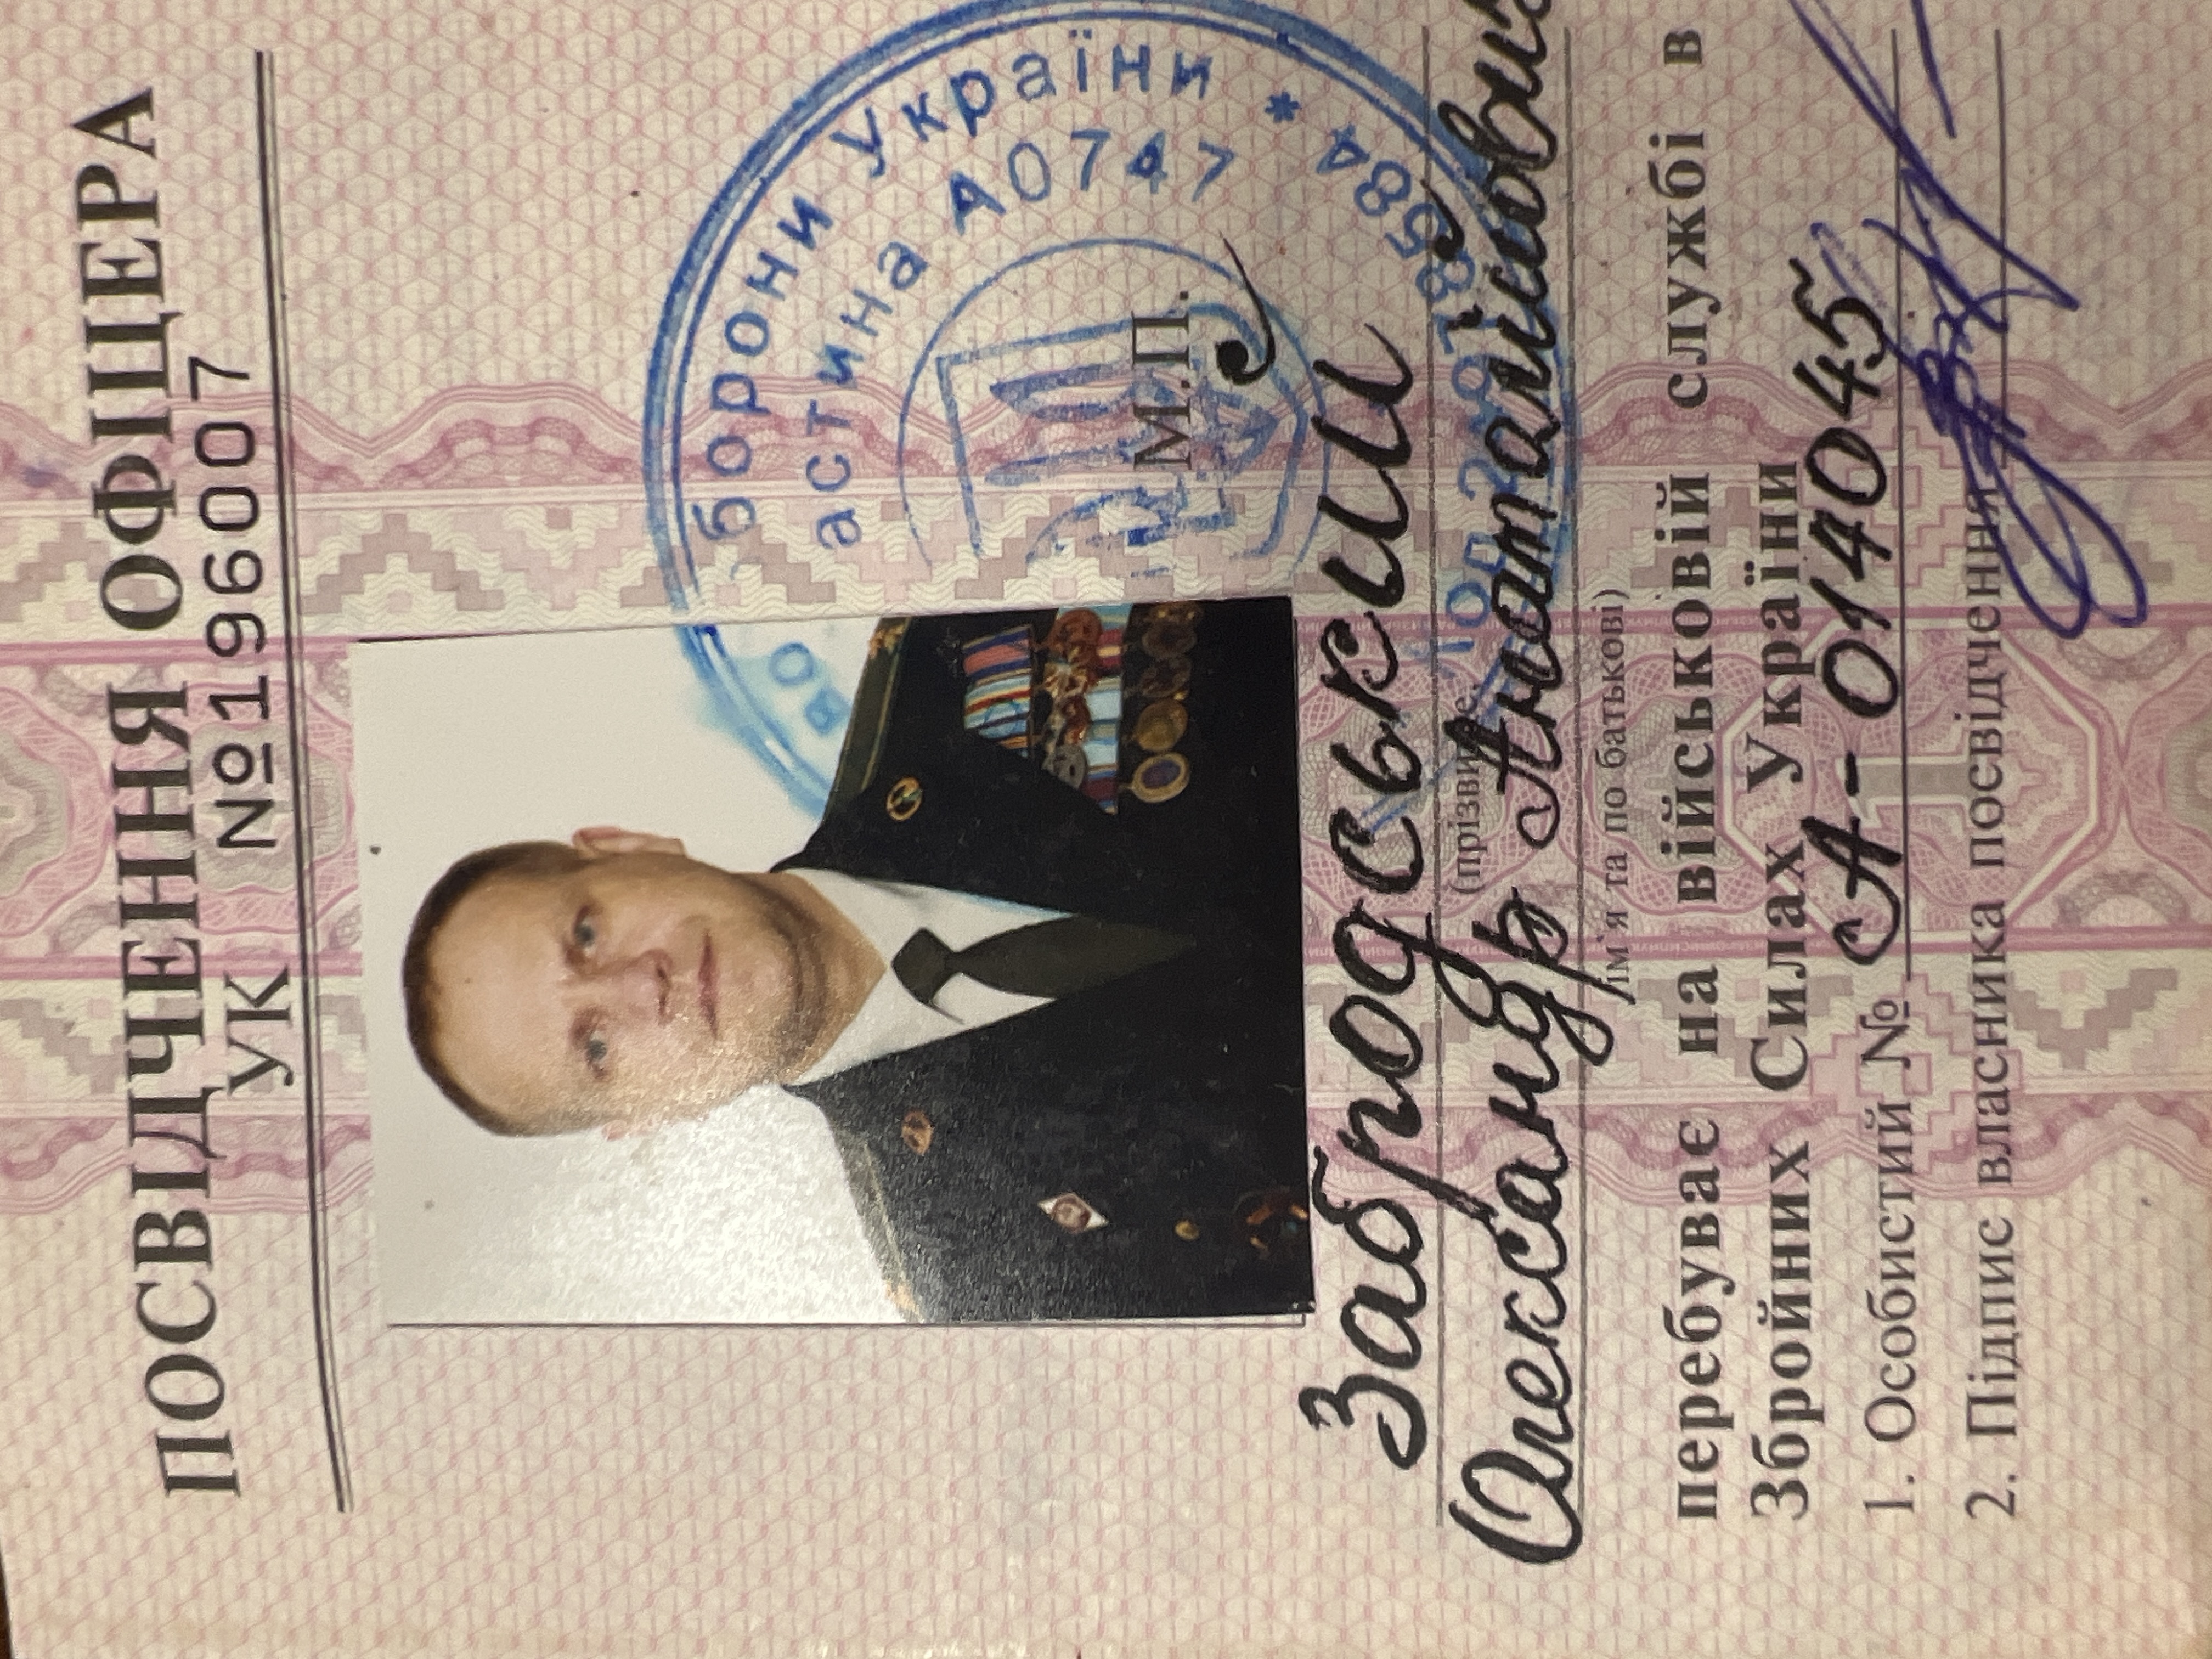 ПОСВІДЧЕННЯ ОФІЦЕРА
УК №196007
борони України *
астина А0747
во
М.П.
Забродський
(прізвище,
Олександр Анатолійович
ім'я та по батькові)
перебуває на військовій службі в
Збройних Силах України
1. Особистий № А-014045
2. Підпис власника посвідчення